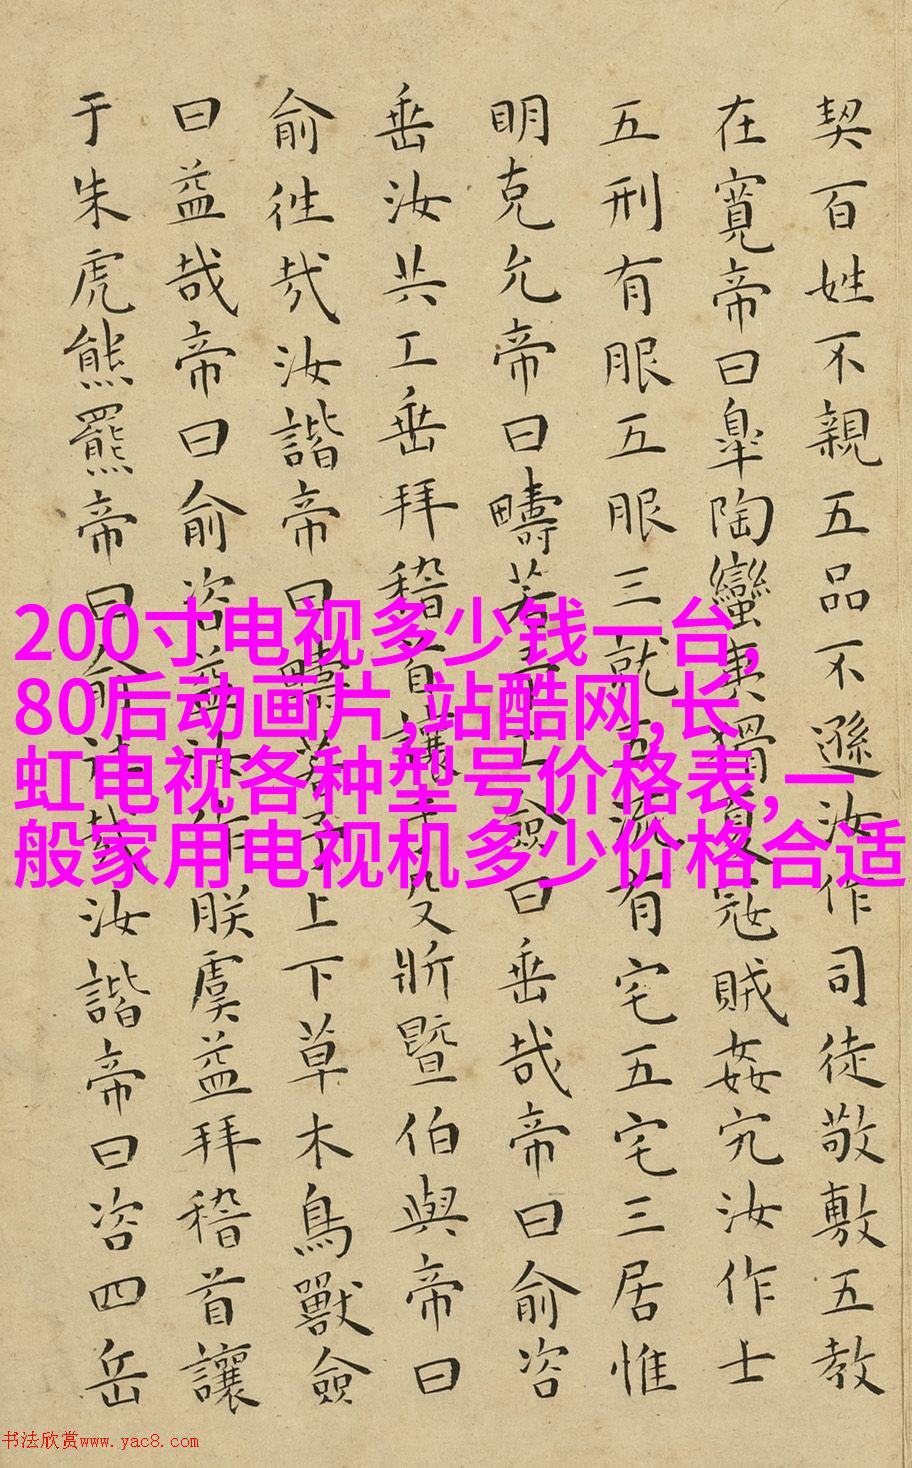 契百姓不親五品不遜汝作司徒敬敷五教
在寬帝曰臯陶蠻夷猾夏寇賊姦宄汝作士
五刑有服五服三就五流有宅五宅三居惟
明克允帝曰疇若予工僉曰垂哉帝曰俞咨
垂汝共工垂拜稽首讓于殳斨暨伯與帝曰
俞往哉汝諧帝曰疇若予上下草木鳥獸僉
曰益哉帝曰俞咨益汝作朕虞益拜稽首讓
于朱虎熊羆帝曰俞往哉汝諧帝曰咨四岳
200寸电视多少钱一台,
80后动画片,站酷网,长
虹电视各种型号价格表,一
般家用电视机多少价格合适
书法欣赏www.yac8.com